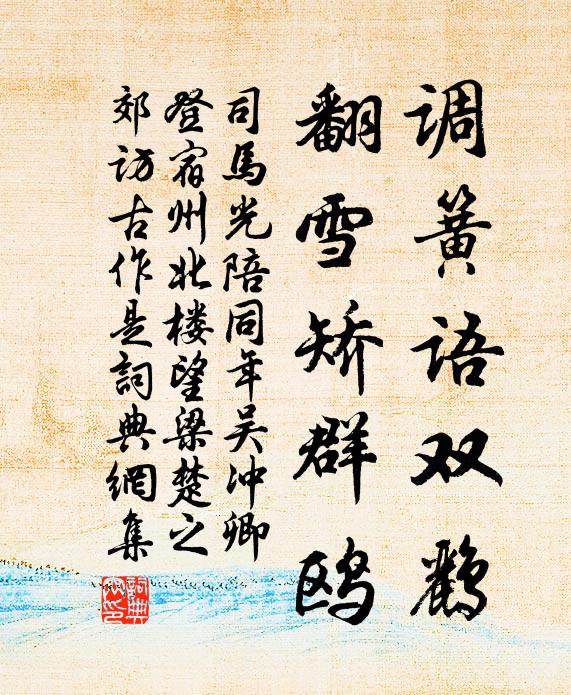 调簧语双鹳
翻雪矫群鸥
司馬光陪同年吴冲卿
登宿州北楼望梁楚之
郊访古作是詞典網集